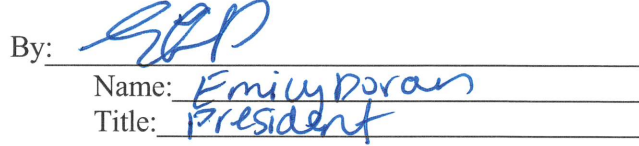 By:
Name: Emily Doran
Title: President